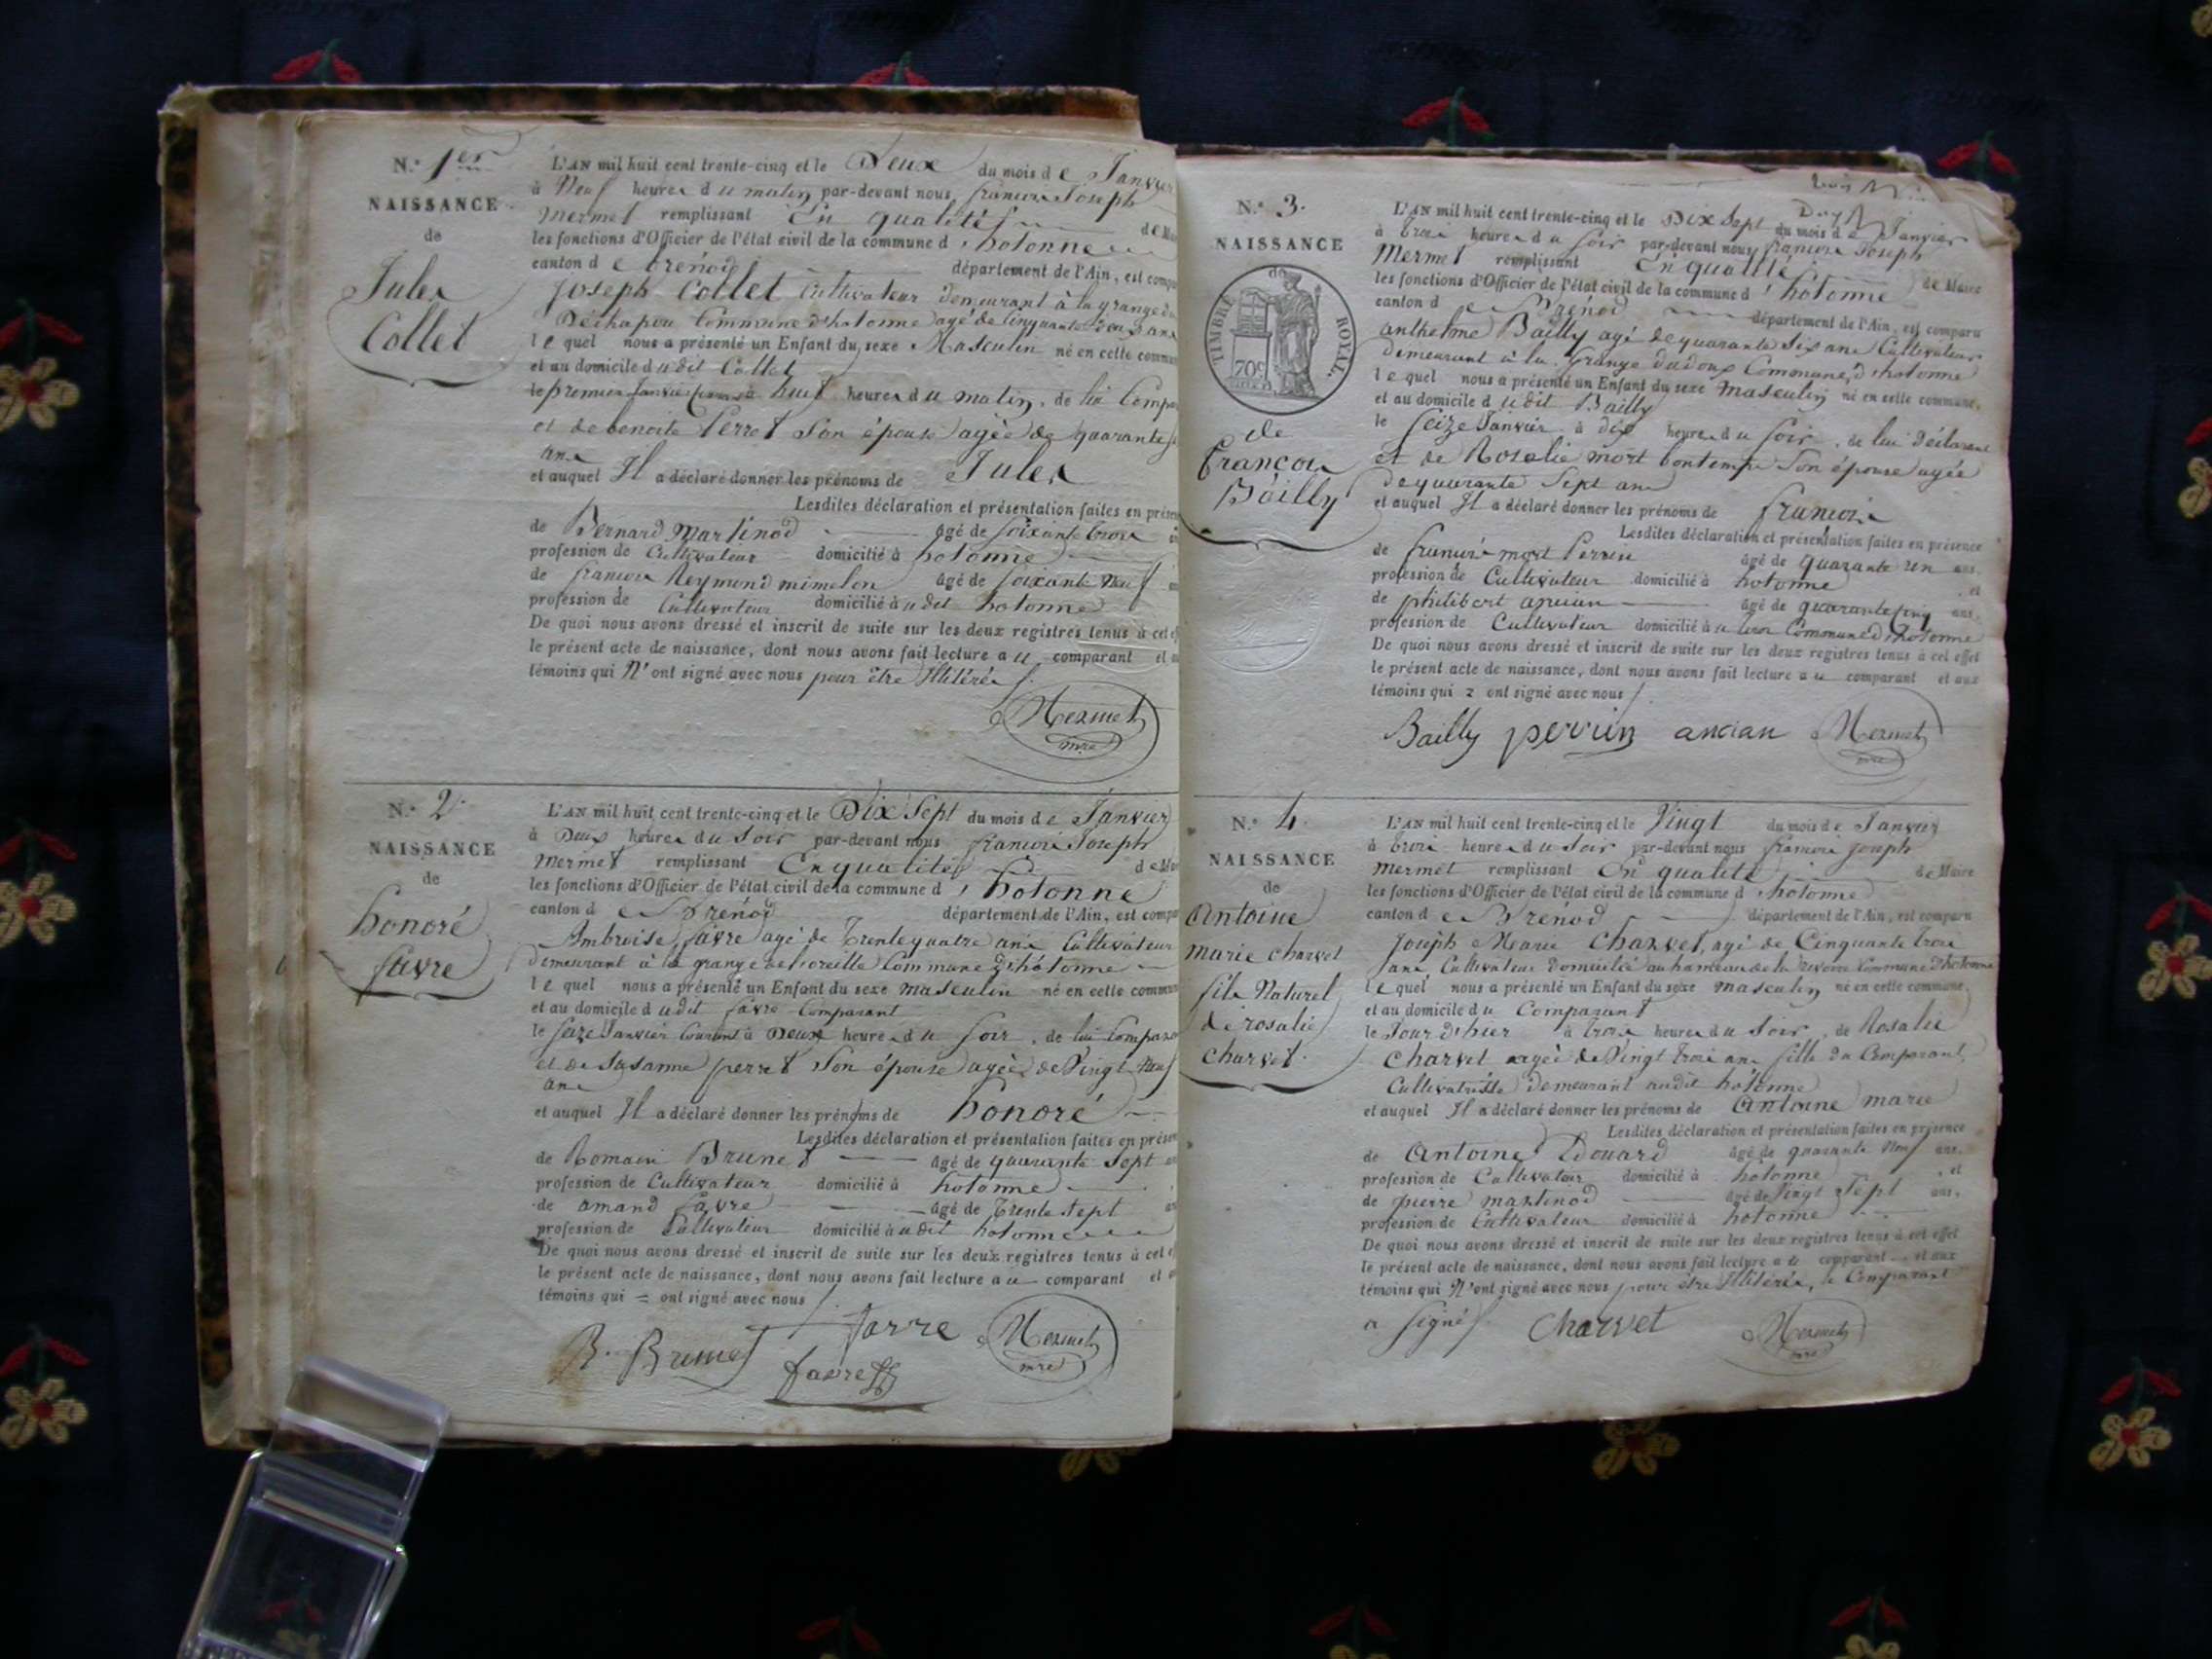 N.º 1er
NAISSANCE
de
Jules
Collet
L'AN mil huit cent trente-cinq et le Deux du mois de Janvier
à Neuf heures du matin par-devant nous francois Joseph
Mermet remplissant En qualité de
les fonctions d'Officier de l'état civil de la commune d'hotonne
canton de Brénod département de l'Ain, est
Joseph Collet Cultivateur demeurant à la grange
Commune d'hotonne agé de Cinquante Deux ans
lequel nous a présenté un Enfant du sexe Masculin né en cette
et au domicile dudit Collet
le premier Janvier à huit heures du matin, de lui
et de benoite Perret Son épouse agée de quarante
ans
et auquel Il a déclaré donner les prénoms de Jules
Lesdites déclaration et présentation faites en
de Bernard Martinod âgé de soixante trois
profession de Cultivateur domicilié à hotonne
de francois Reymond mimelon âgé de soixante Neuf
profession de Cultivateur domicilié audit hotonne
De quoi nous avons dressé et inscrit de suite sur les deux registres tenus à cet
le présent acte de naissance, dont nous avons fait lecture au comparant et
témoins qui N'ont signé avec nous pour être Illitérés
Mermet
mre
N.º 2.
NAISSANCE
de
honoré
favre
L'AN mil huit cent trente-cinq et le Dix Sept du mois de Janvier
à Deux heures du Soir par-devant nous francois Joseph
Mermet remplissant En qualité de
les fonctions d'Officier de l'état civil de la commune d'hotonne
canton de Brénod département de l'Ain, est
Ambroise favre agé de Trente quatre ans Cultivateur
demeurant à la grange Commune d'hotonne
lequel nous a présenté un Enfant du sexe masculin né en cette
et au domicile dudit favre Comparant
le seize Janvier Courant à Deux heures du soir, de lui
et de Susanne perret Son épouse agée de Vingt Neuf
ans
et auquel Il a déclaré donner les prénoms de honoré
Lesdites déclaration et présentation faites en
de Romain Brunet âgé de quarante Sept
profession de Cultivateur domicilié à hotonne
de amand favre âgé de Trente Sept
profession de Cultivateur domicilié audit hotonne
De quoi nous avons dressé et inscrit de suite sur les deux registres tenus à cet
le présent acte de naissance, dont nous avons fait lecture au comparant et
témoins qui = ont signé avec nous
R. Brunet favre favre Mermet
mre
N.º 3.
NAISSANCE
de
TIMBRE ROYAL.
70c
de
francois
Bailly
L'AN mil huit cent trente-cinq et le Dix Sept du mois de Janvier
à trois heures du soir par-devant nous francois Joseph
Mermet remplissant En qualité de Maire
les fonctions d'Officier de l'état civil de la commune d'hotonne
canton de Brénod département de l'Ain, est comparu
anthelme Bailly agé de quarante Six ans Cultivateur
demeurant à la Grange Commune d'hotonne
lequel nous a présenté un Enfant du sexe masculin né en cette commune,
et au domicile dudit Bailly
le seize Janvier à dix heures du soir, de lui Déclarant
et de Rosalie mort bontemps Son épouse agée
de quarante Sept ans
et auquel Il a déclaré donner les prénoms de francois
Lesdites déclaration et présentation faites en présence
de francois mort Perrin âgé de quarante un ans,
profession de Cultivateur domicilié à hotonne, et
de philibert ancian âgé de quarante Cinq ans,
profession de Cultivateur domicilié à Commune d'hotonne
De quoi nous avons dressé et inscrit de suite sur les deux registres tenus à cet effet
le présent acte de naissance, dont nous avons fait lecture au comparant et aux
témoins qui = ont signé avec nous
Bailly perrin ancian Mermet
mre
N.º 4.
NAISSANCE
de
Antoine
marie charvet
fils Naturel
de rosalie
charvet.
L'AN mil huit cent trente-cinq et le Vingt du mois de Janvier
à trois heures du Soir par-devant nous francois joseph
Mermet remplissant En qualité de Maire
les fonctions d'Officier de l'état civil de la commune d'hotonne
canton de Brénod département de l'Ain, est comparu
Joseph Marie Charvet, agé de Cinquante trois
ans Cultivateur Domicilié au hameau de la Commune d'hotonne
lequel nous a présenté un Enfant du sexe masculin né en cette commune,
et au domicile du Comparant
le Jour d'hier à trois heures du Soir, de Rosalie
Charvet agée de Vingt trois ans fille du Comparant
Cultivatrice demeurant audit hotonne
et auquel Il a déclaré donner les prénoms de Antoine marie
Lesdites déclaration et présentation faites en présence
de Antoine Edouard âgé de quarante Neuf ans,
profession de Cultivateur domicilié à hotonne, et
de pierre martinod âgé de Vingt Sept ans,
profession de Cultivateur domicilié à hotonne
De quoi nous avons dressé et inscrit de suite sur les deux registres tenus à cet effet
le présent acte de naissance, dont nous avons fait lecture au comparant et aux
témoins qui N'ont signé avec nous pour être Illitérés, le Comparant
a signé
Charvet Mermet
mre